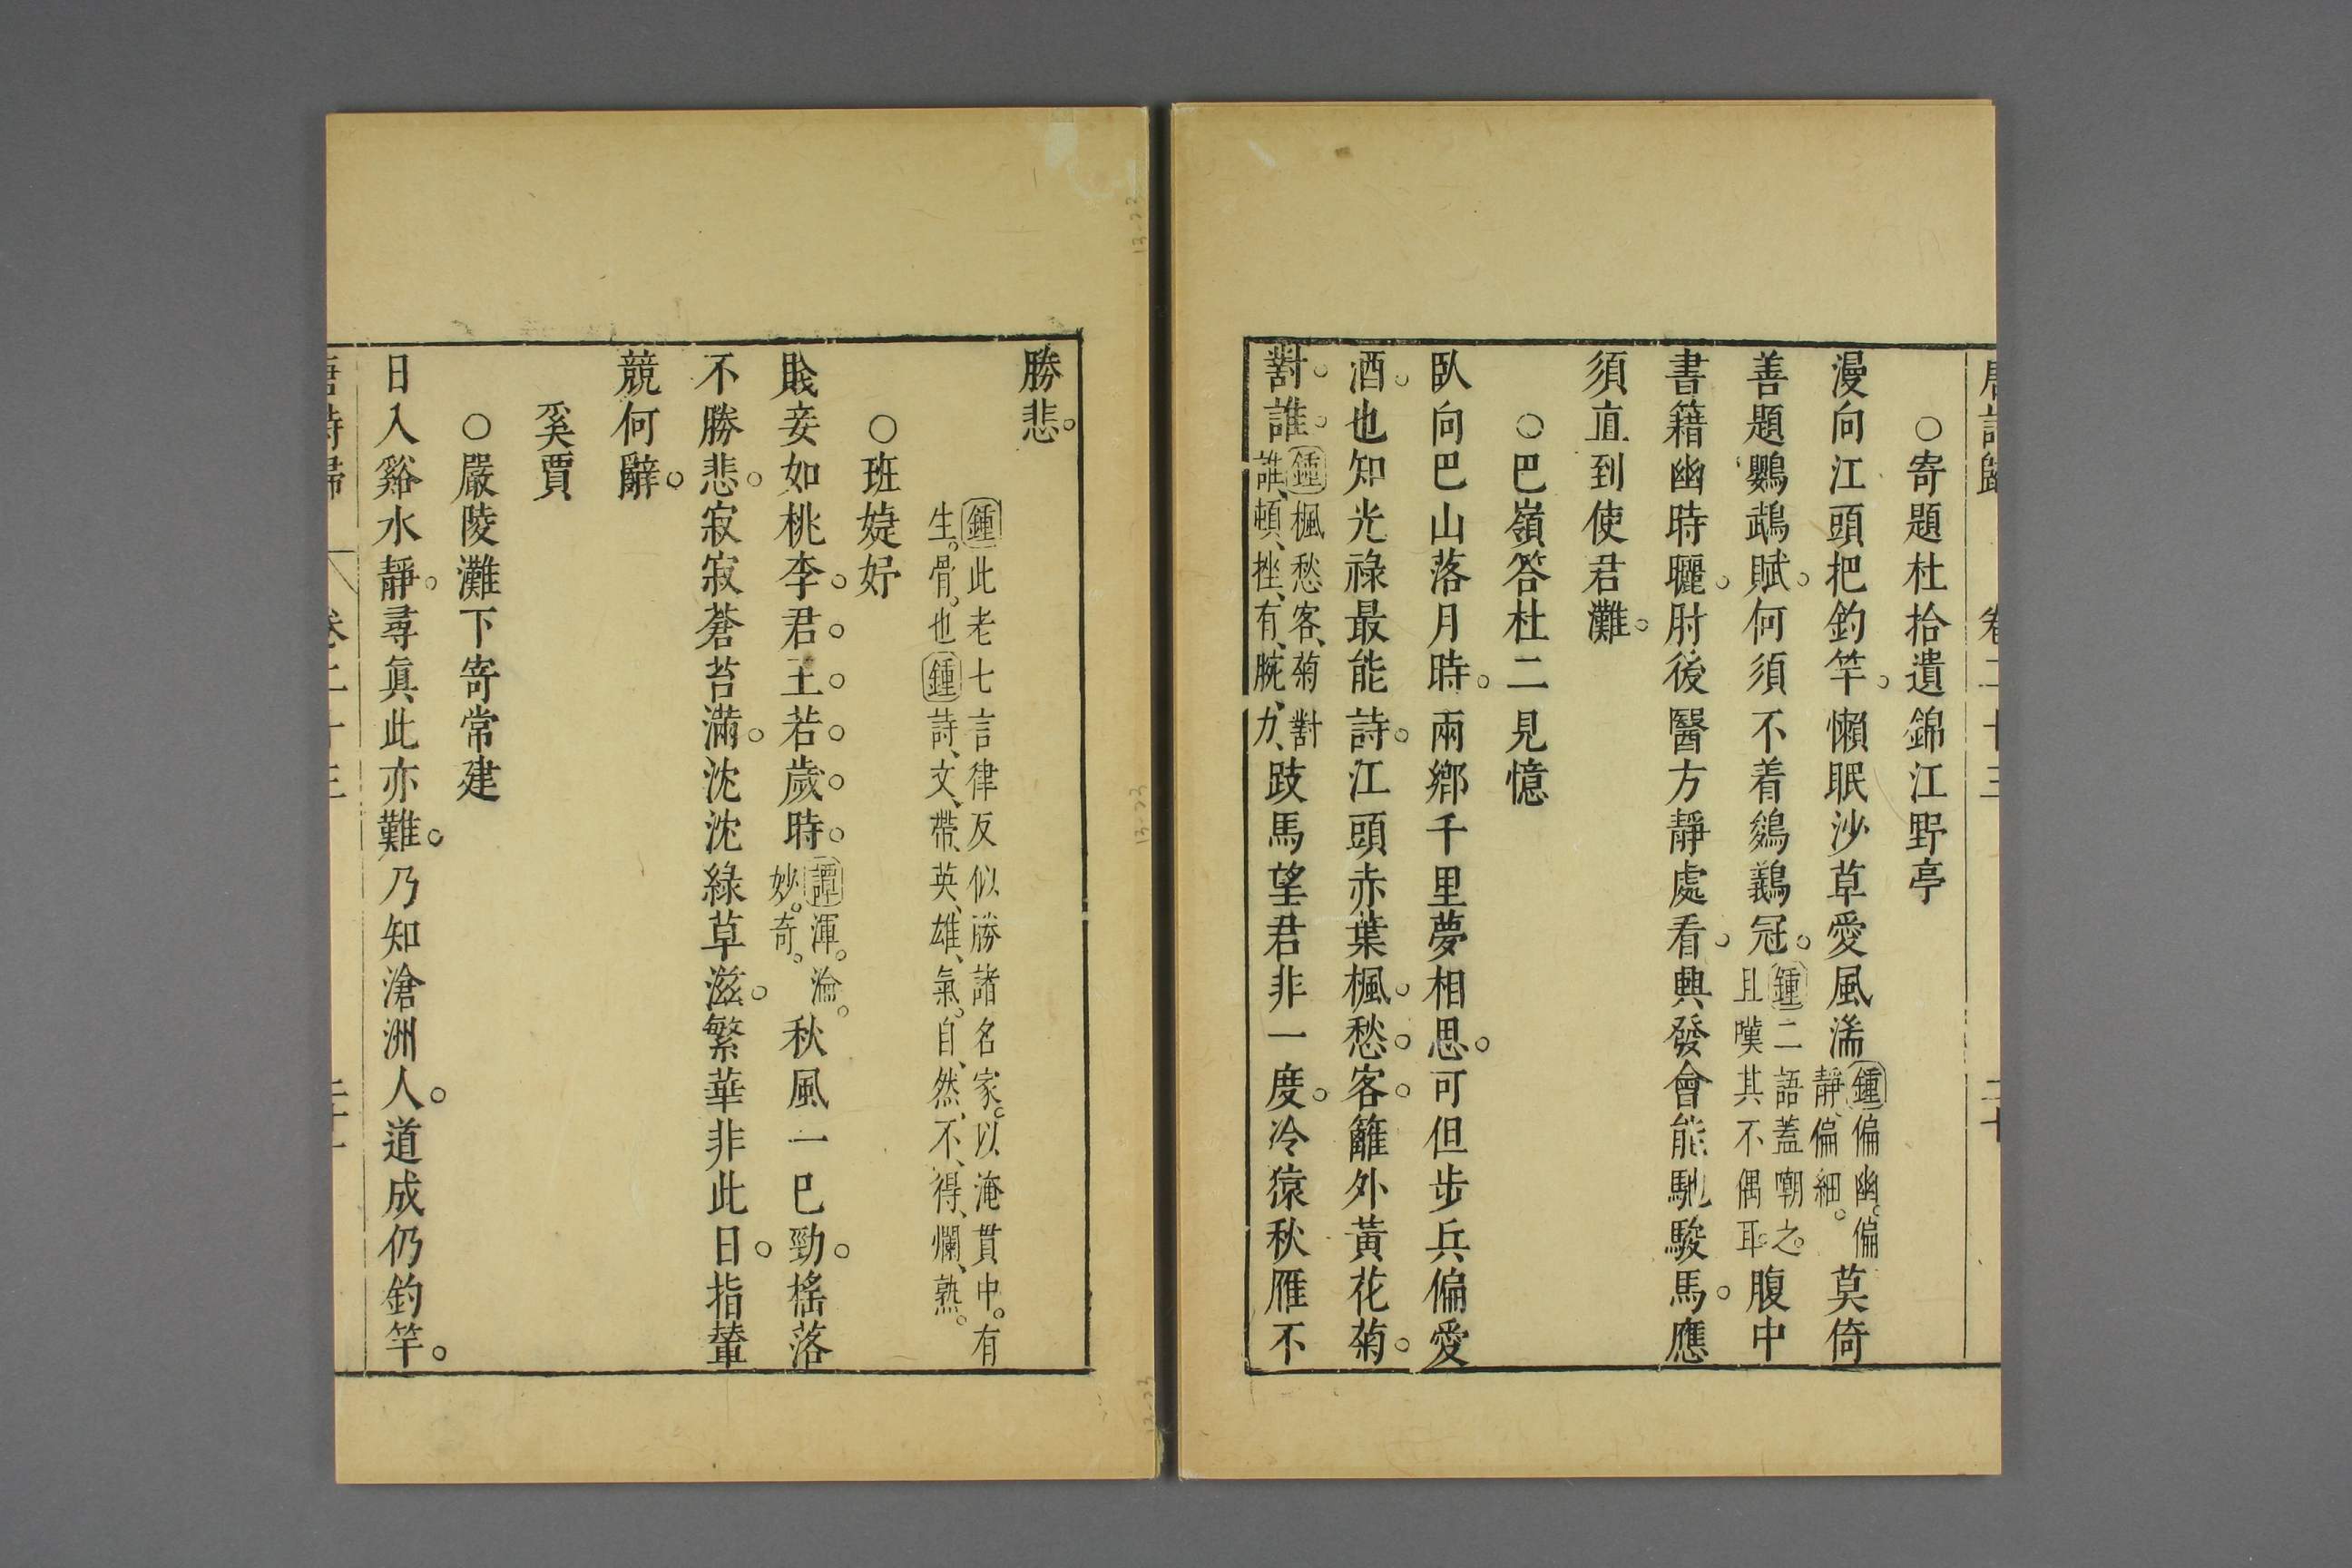 唐詩歸 卷二十三 二十
○寄題杜拾遺錦江野亭
漫向江頭把釣竿。懶眠沙草愛風湍鍾偏幽。偏靜、偏細。莫倚
善題鸚鵡賦。何須不着鵕鸃冠。鍾二語蓋嘲之。且嘆其不偶耳。腹中
書籍幽時曬。肘後醫方靜處看。興發會能馳駿馬。應
須直到使君灘。
○巴嶺答杜二見憶
臥向巴山落月時。兩鄉千里夢相思。可但步兵偏愛
酒。也知光祿最能詩。江頭赤葉楓。愁。客。籬外黃花菊。
對。誰。鍾楓愁客、菊對誰、頓、挫、有、腕、力、跂馬望君非一度。冷猿秋雁不
勝悲。
鍾此老七言律反似勝諸名家。以淹貫中。有
生。骨。也鍾詩、文、帶、英、雄、氣。自、然、不、得、爛、熟。
○班婕妤
賤妾如桃李。君。王。若。歲。時。譚渾。淪。妙。奇。秋風一已勁。搖落
不勝悲。寂寂蒼苔滿。沈沈綠草滋。繁華非此日。指輦
競何辭。
奚賈
○嚴陵灘下寄常建
日入谿水靜。尋眞此亦難。乃知滄洲人。道成仍釣竿。
唐詩歸 卷二十三 二十一